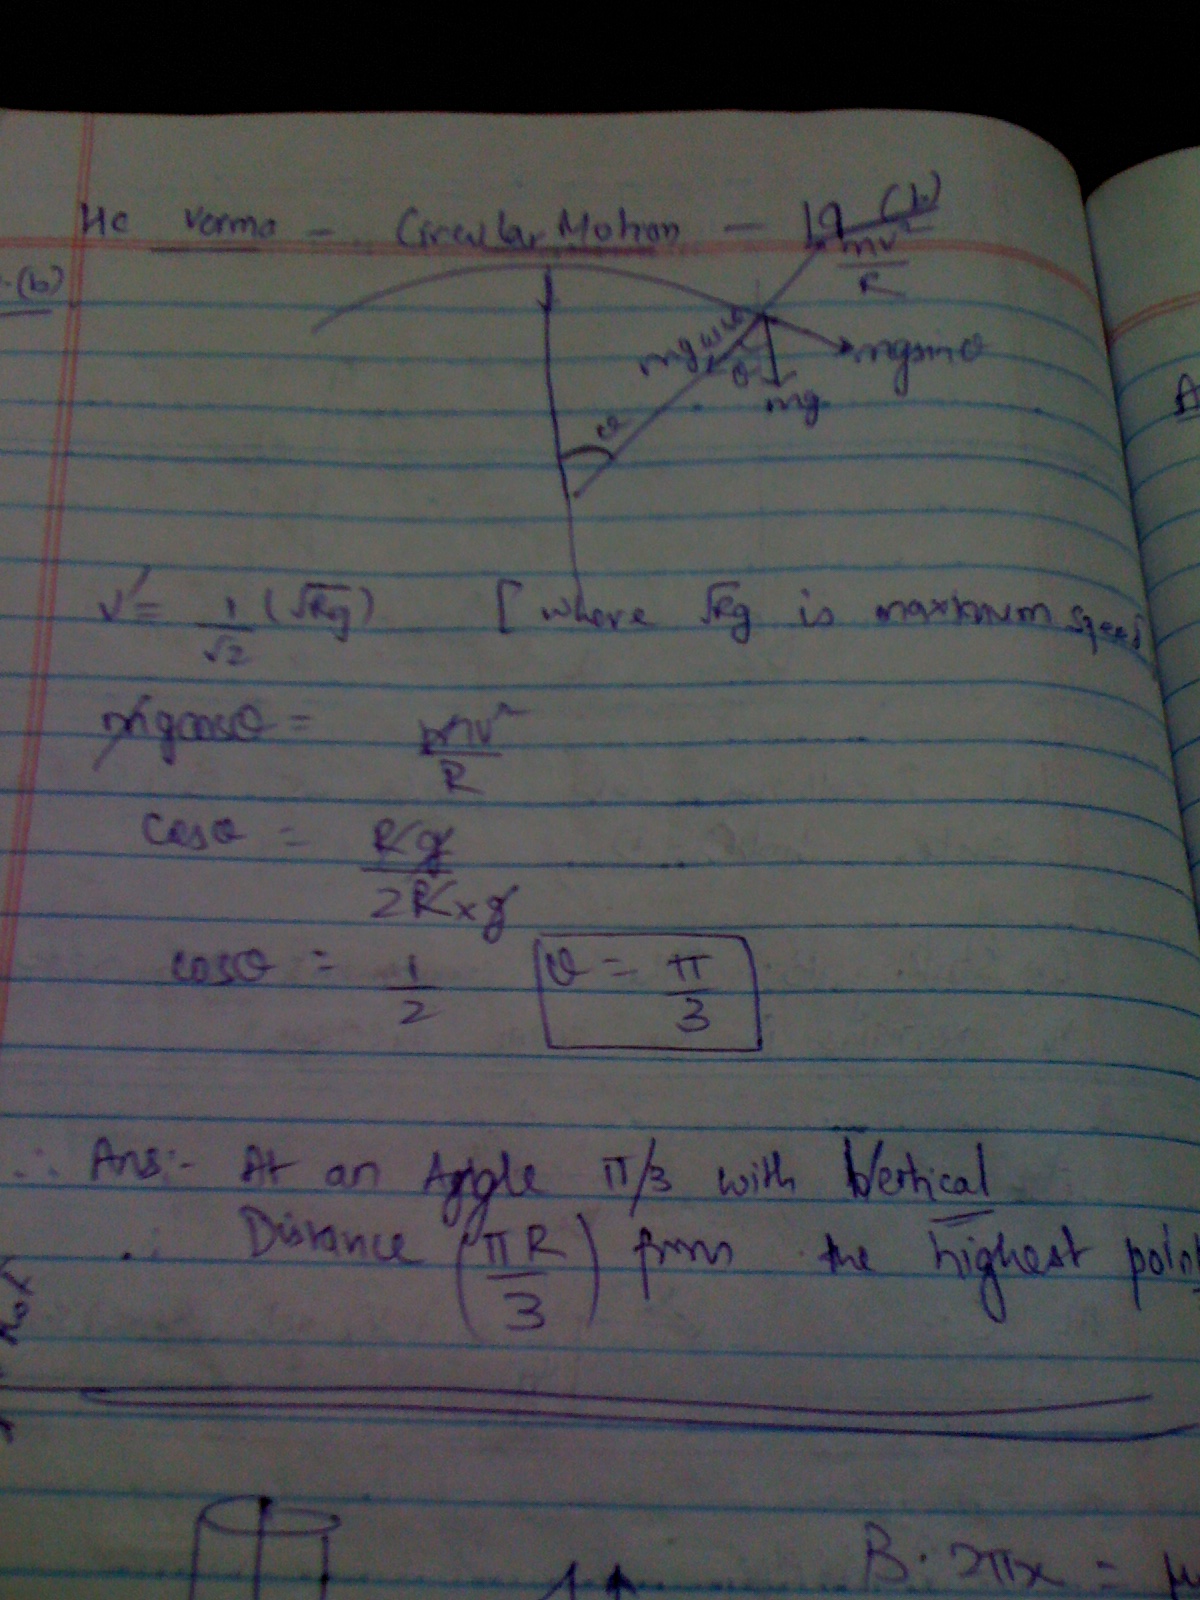 HC Verma - Circular Motion - 19 (b)
.(b)
mv²
R
mg cosθ
mgsinθ
θ
mg
θ
A
v' = 1/√2 (√Rg) [ where √Rg is maximum speed
mgcosθ = mv²/R
cosθ = Rg/2R×g
cosθ = 1/2 θ = π/3
∴ Ans:- At an Angle π/3 with Vertical
∴ Distance (πR/3) from the highest point
B. 2πx = μ